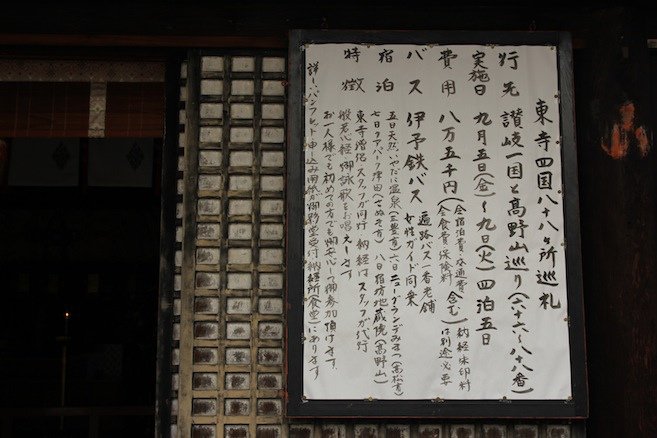 東寺四国八十八ヶ所巡礼
行先 讃岐一国と髙野山巡り(六十六〜八十八番)
実施日 九月五日(金)〜九日(火)四泊五日
費用 八万五千円(全宿泊費・交通費・全食費・保険料 含む)納経朱印料は別途必要
バス 伊予鉄バス 遍路バス一番老舗 女性ガイド同乗
宿泊 五日天然いやだに温泉(三豊市)六日ニューグランデみまつ(高松市)
七日クアパーク津田(さぬき市)八日宿坊地蔵院(髙野山)
特徴 東寺僧侶スタッフが同行 納経はスタッフが代行
般若心経・御詠歌をお唱えします
お一人様でも初めての方でも御安心して御参加頂けます。
詳しいパンフレット申し込み用紙が御影堂受付・納経所(食堂)にあります。